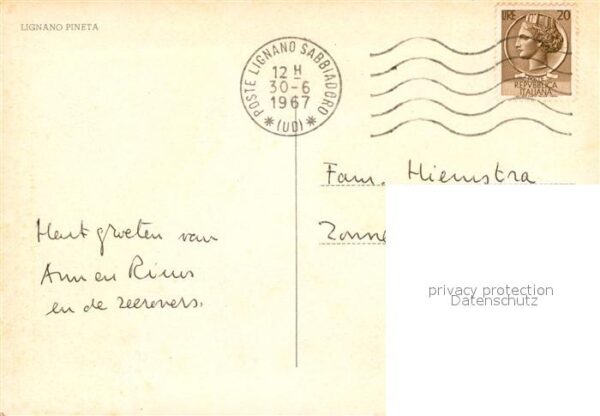 LIGNANO PINETA
POSTE LIGNANO SABBIADORO
12 H
30-6
1967
*(UD)*
LIRE 20
REPVBBLICA
ITALIANA
Fam. Hiemstra
Zonne
Hart. groeten van
Ann en Rinus
en de zeerovers.
privacy protection
Datenschutz